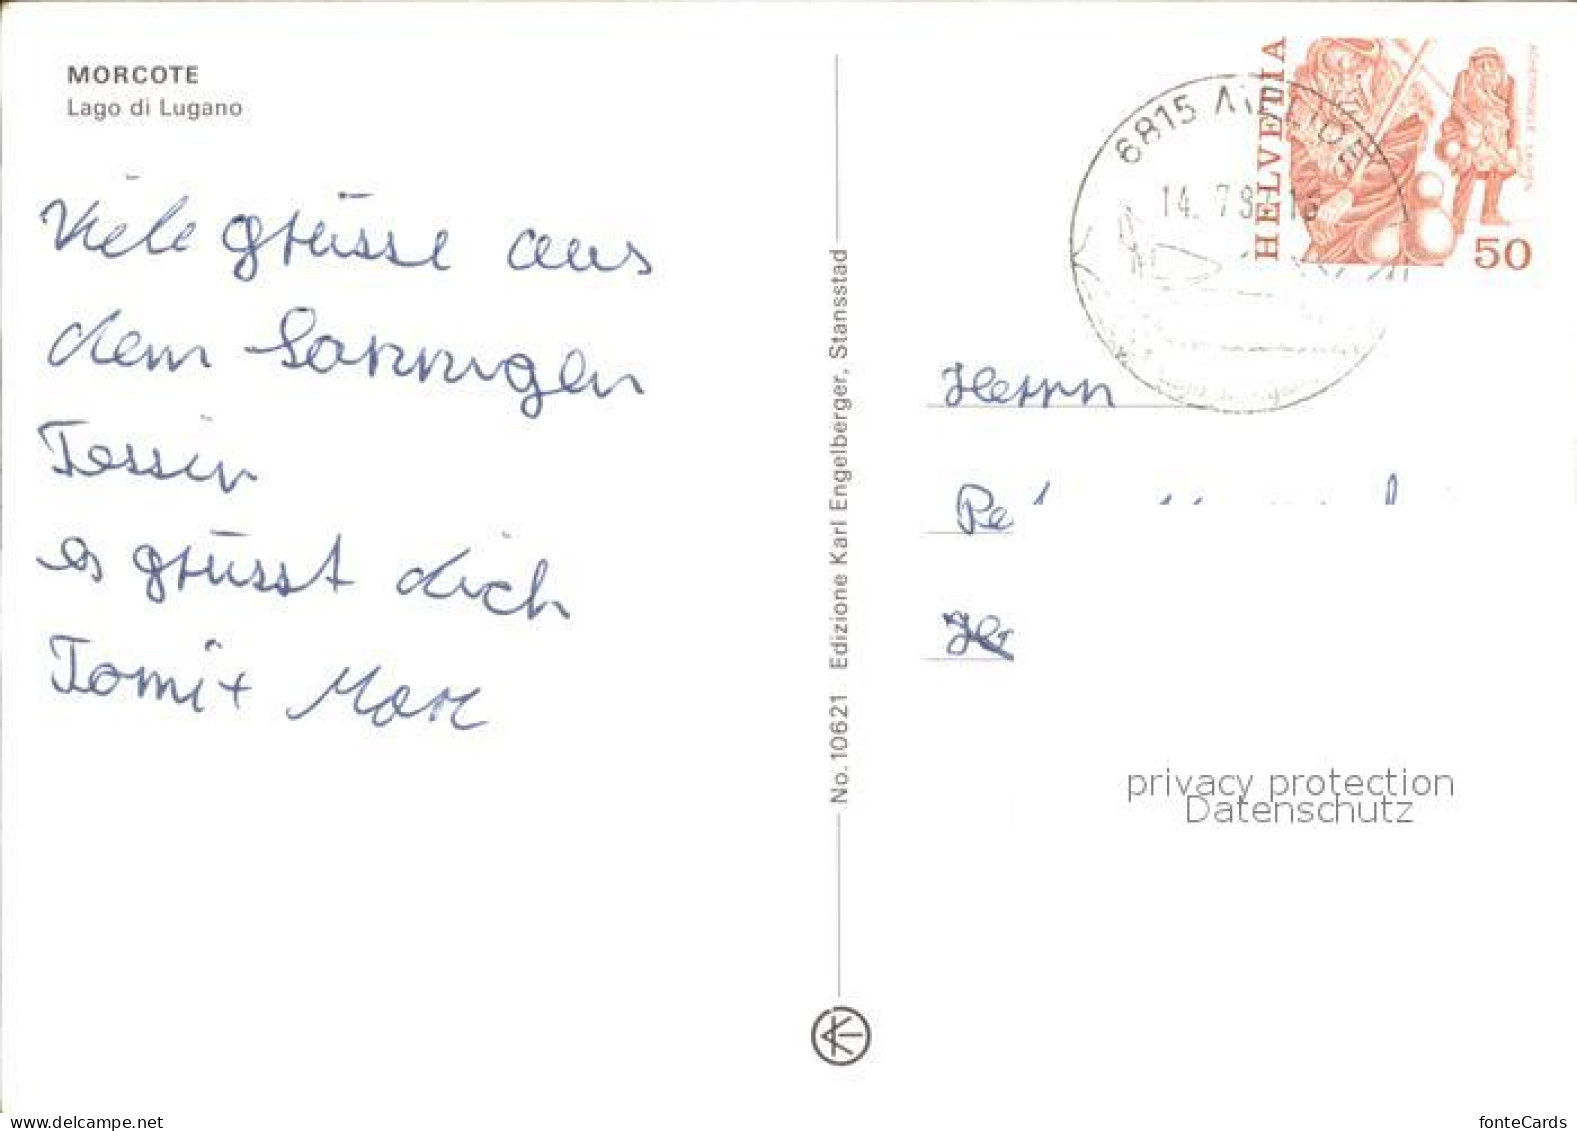 MORCOTE
Lago di Lugano
Viele grüsse aus
dem Sonnigen
Tessin
es grüsst dich
Tomi + Marc
No. 10621 Edizione Karl Engelberger, Stansstad
HELVETIA
50
6815
14. 7
Herrn
privacy protection
Datenschutz
www.delcampe.net
fonteCards